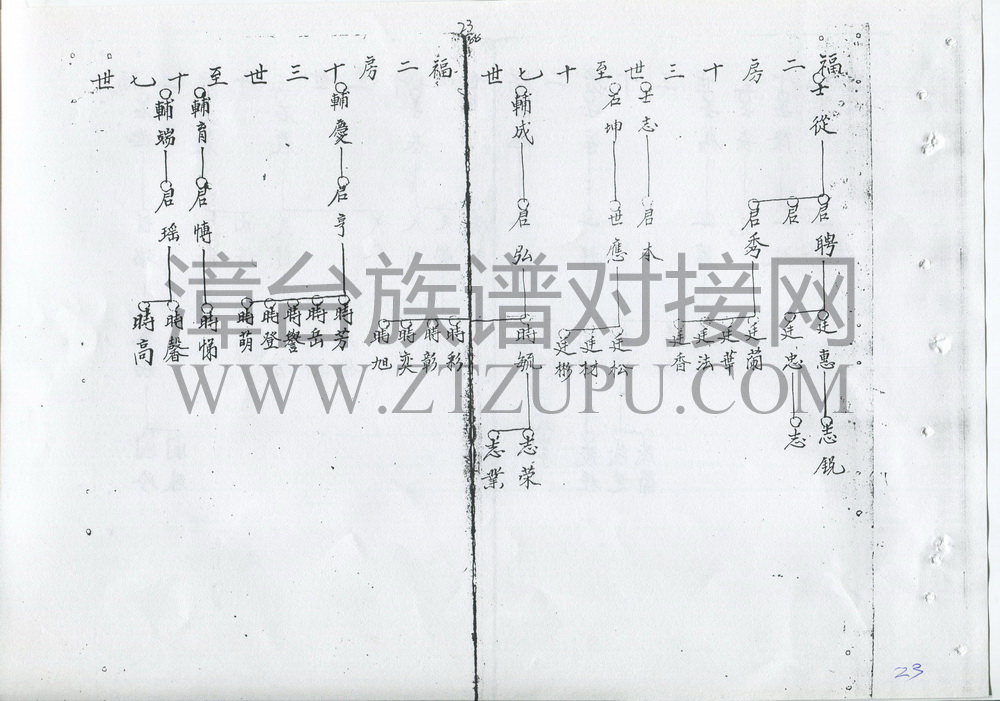 23
福二房十三世至十七世
士從
君聘
君
君秀
廷惠
廷忠
廷蘭
廷華
廷法
廷香
志銳
志
士志
君本
君坤
世應
廷松
廷材
廷彬
輔成
君弘
時毓
時彩
時彰
時奕
時旭
志荣
志業
福二房十三世至十七世
輔慶
君亨
時芳
時岳
時譽
時登
時萌
輔育
君博
時悌
輔端
君瑶
時馨
時高
漳台族谱对接网
WWW.ZTZUPU.COM
23